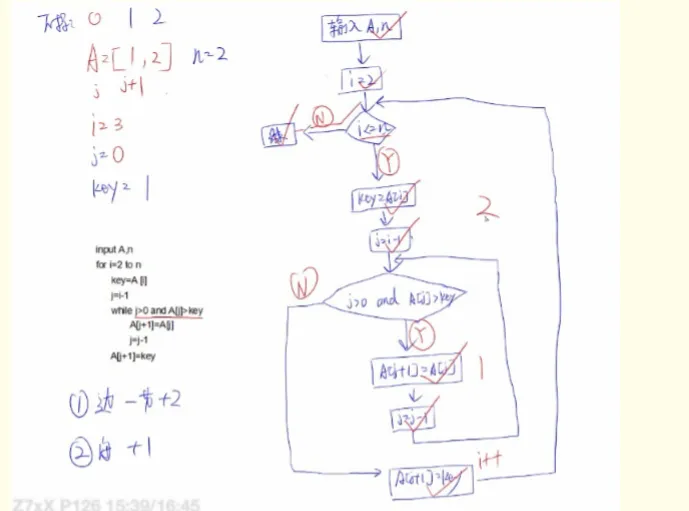 下标: 0 1 2
A=[1,2] n=2
j j+1
i=3
j=0
key=1
input A,n
for i=2 to n
key=A[i]
j=i-1
while j>0 and A[j]>key
A[j+1]=A[j]
j=j-1
A[j+1]=key
①边-节+2
② +1
输入 A,n
i=2
N
i<=n
Y
key=A[i]
j=i-1
2
N
j>0 and A[j]>key
Y
A[j+1]=A[j]
1
j=j-1
i++
A[j+1]=key
Z7xX P126 15:39/16:45